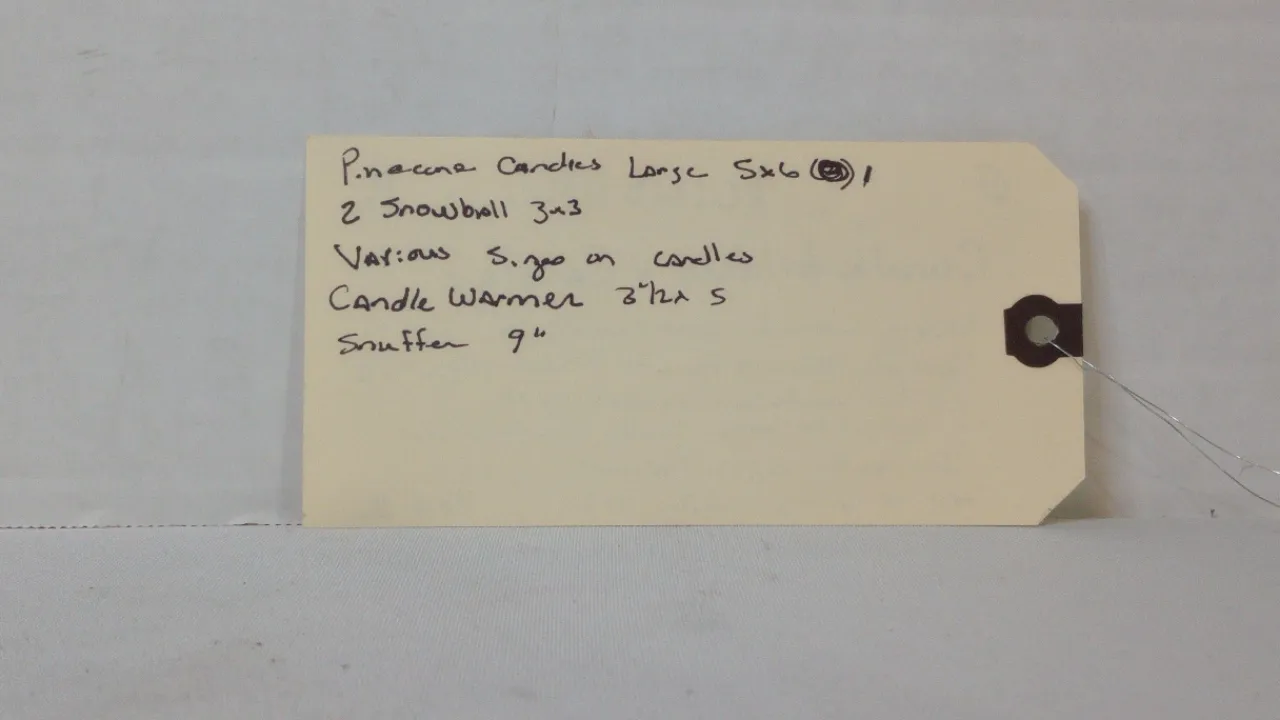 Pinecone Candles Large 5x6 () 1
2 Snowball 3x3
Various Sizes on candles
Candle Warmer 3"1/2 x 5
Snuffer 9"